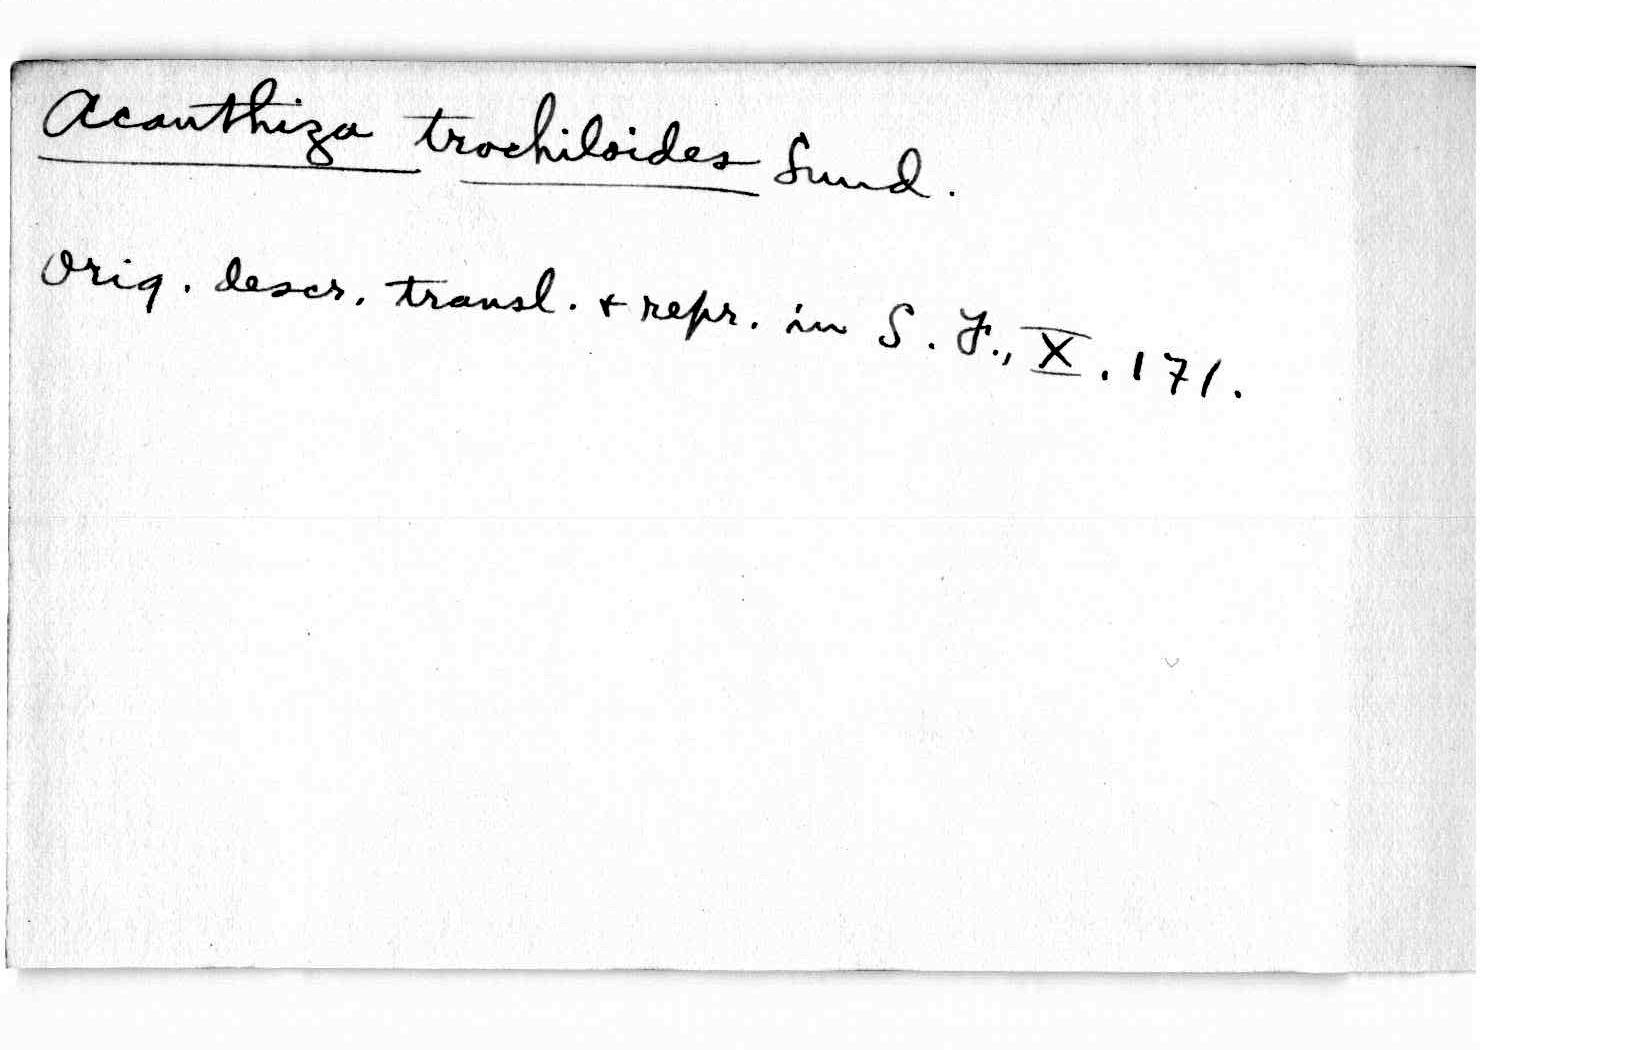 Acanthiza trochiloides Sund.
Orig. descr. transl. & repr. in S. F., X. 171.